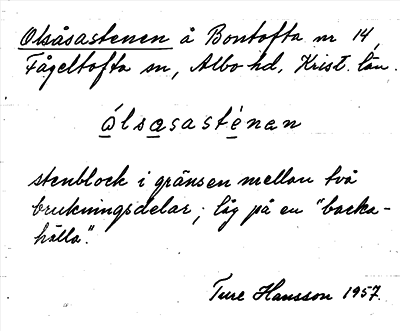 Olsåsastenen å Bontofta nr 14,
Fågeltofta sn, Albo hd, Krist. län.
ólsasasténan
stenblock i gränsen mellan två
brukningsdelar; låg på en "backa-
hålla".
Ture Hansson 1957.